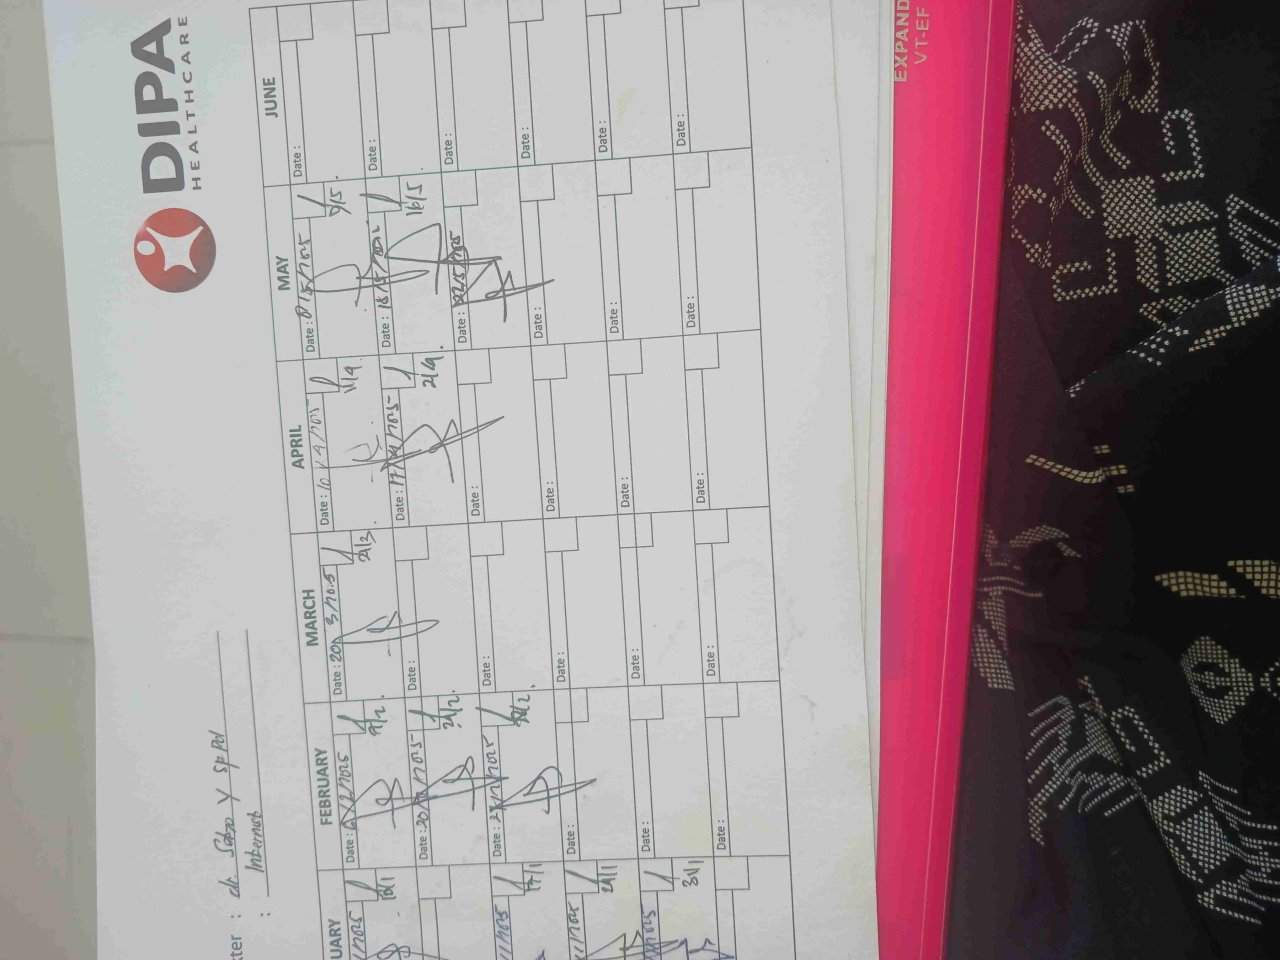 DIPA
HEALTHCARE
EXPAND
VT-EF
kter : dr. Sabro Y SpPd
: Internat
UARY FEBRUARY MARCH APRIL MAY JUNE
/2025 Date : /2/2025 Date : 20/3/2025 Date : 10/4/2025 Date : 8/5/2025 Date :
10/1 21/3 11/4 9/5
Date : 20/2/2025 Date : Date : 17/4/2025 Date : 15/5/2025 Date :
21/2 21/4 16/5
/2025 Date : 27/2/2025 Date : Date : Date : 22/5/2025 Date :
17/1
/2025 Date : Date : Date : Date : Date :
24/1
/2025 Date : Date : Date : Date : Date :
31/1
Date : Date : Date : Date : Date :